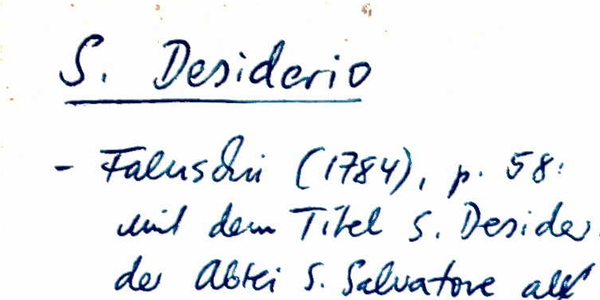 S. Desiderio
- Faluschi (1784), p. 58:
mit dem Titel S. Desider
der Abtei S. Salvatore als